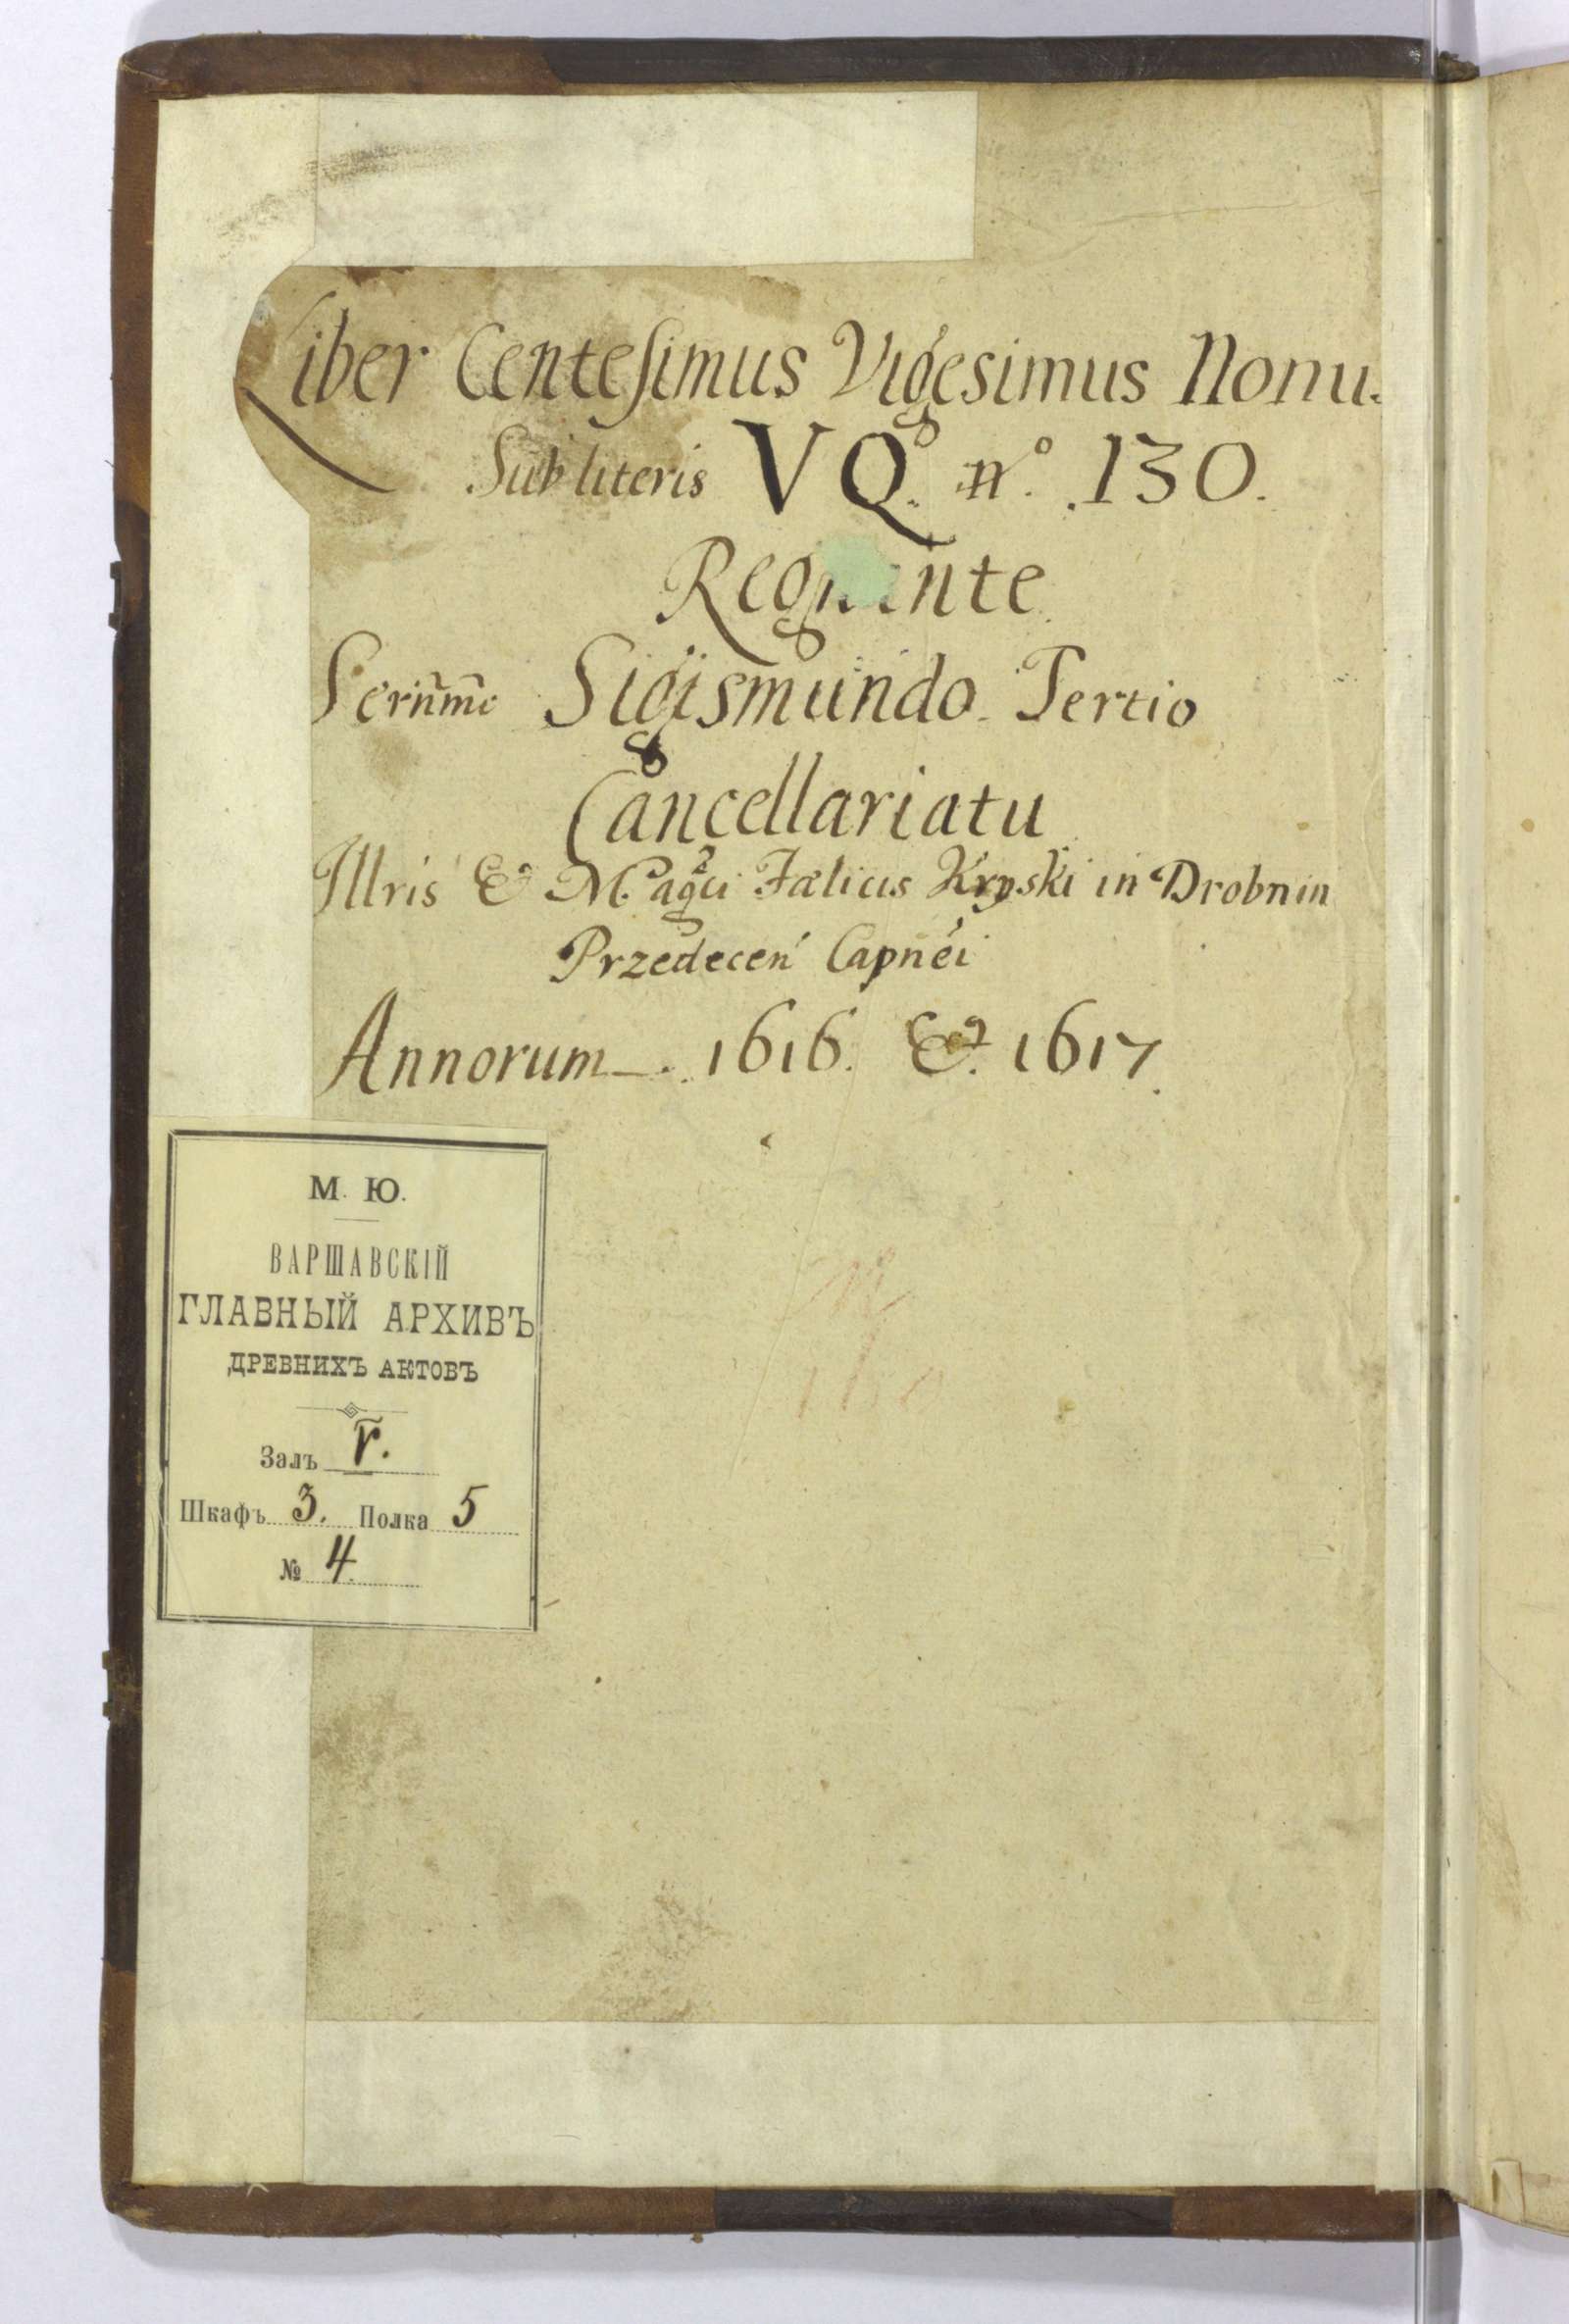 Liber Centesimus Vigesimus Nonu.
Sub literis VQ. N.º 130.
Regnante
Serm̃m̃o Sigismundo Tertio
Cancellariatu
Illris & Magci Fælicis Kryski in Drobnin
Przedecen Capnei
Annorum 1616. &. 1617.
М. Ю.
ВАРШАВСКІЙ
ГЛАВНЫЙ АРХИВЪ
ДРЕВНИХЪ АКТОВЪ
Залъ V.
Шкафъ 3. Полка 5
№ 4.